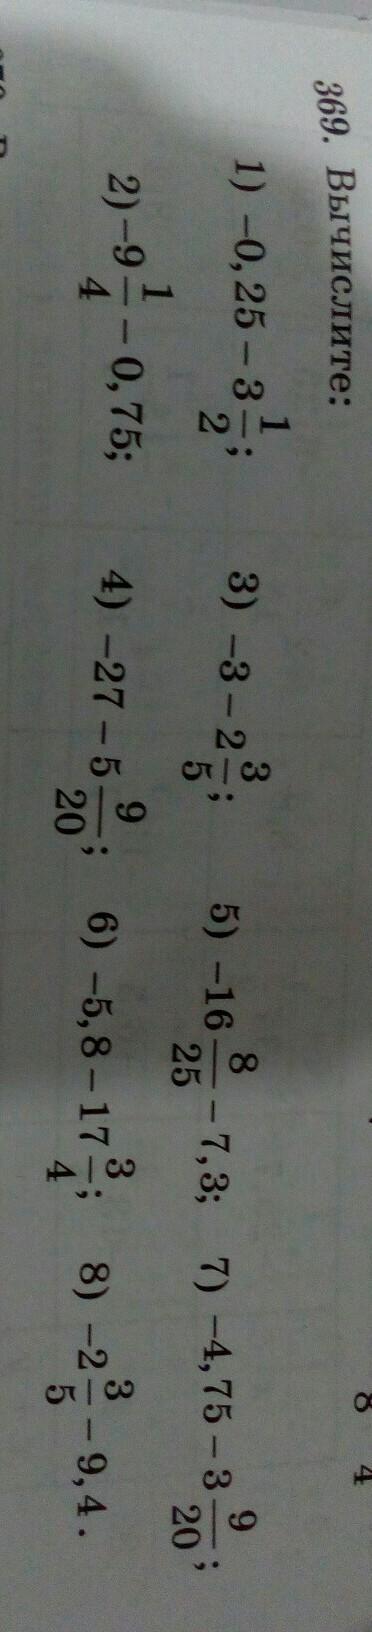 369. Вычислите:
1) –0,25 – 3 1/2; 3) –3 – 2 3/5; 5) –16 8/25 – 7,3; 7) –4,75 – 3 9/20;
2) –9 1/4 – 0,75; 4) –27 – 5 9/20; 6) –5,8 – 17 3/4; 8) –2 3/5 – 9,4.